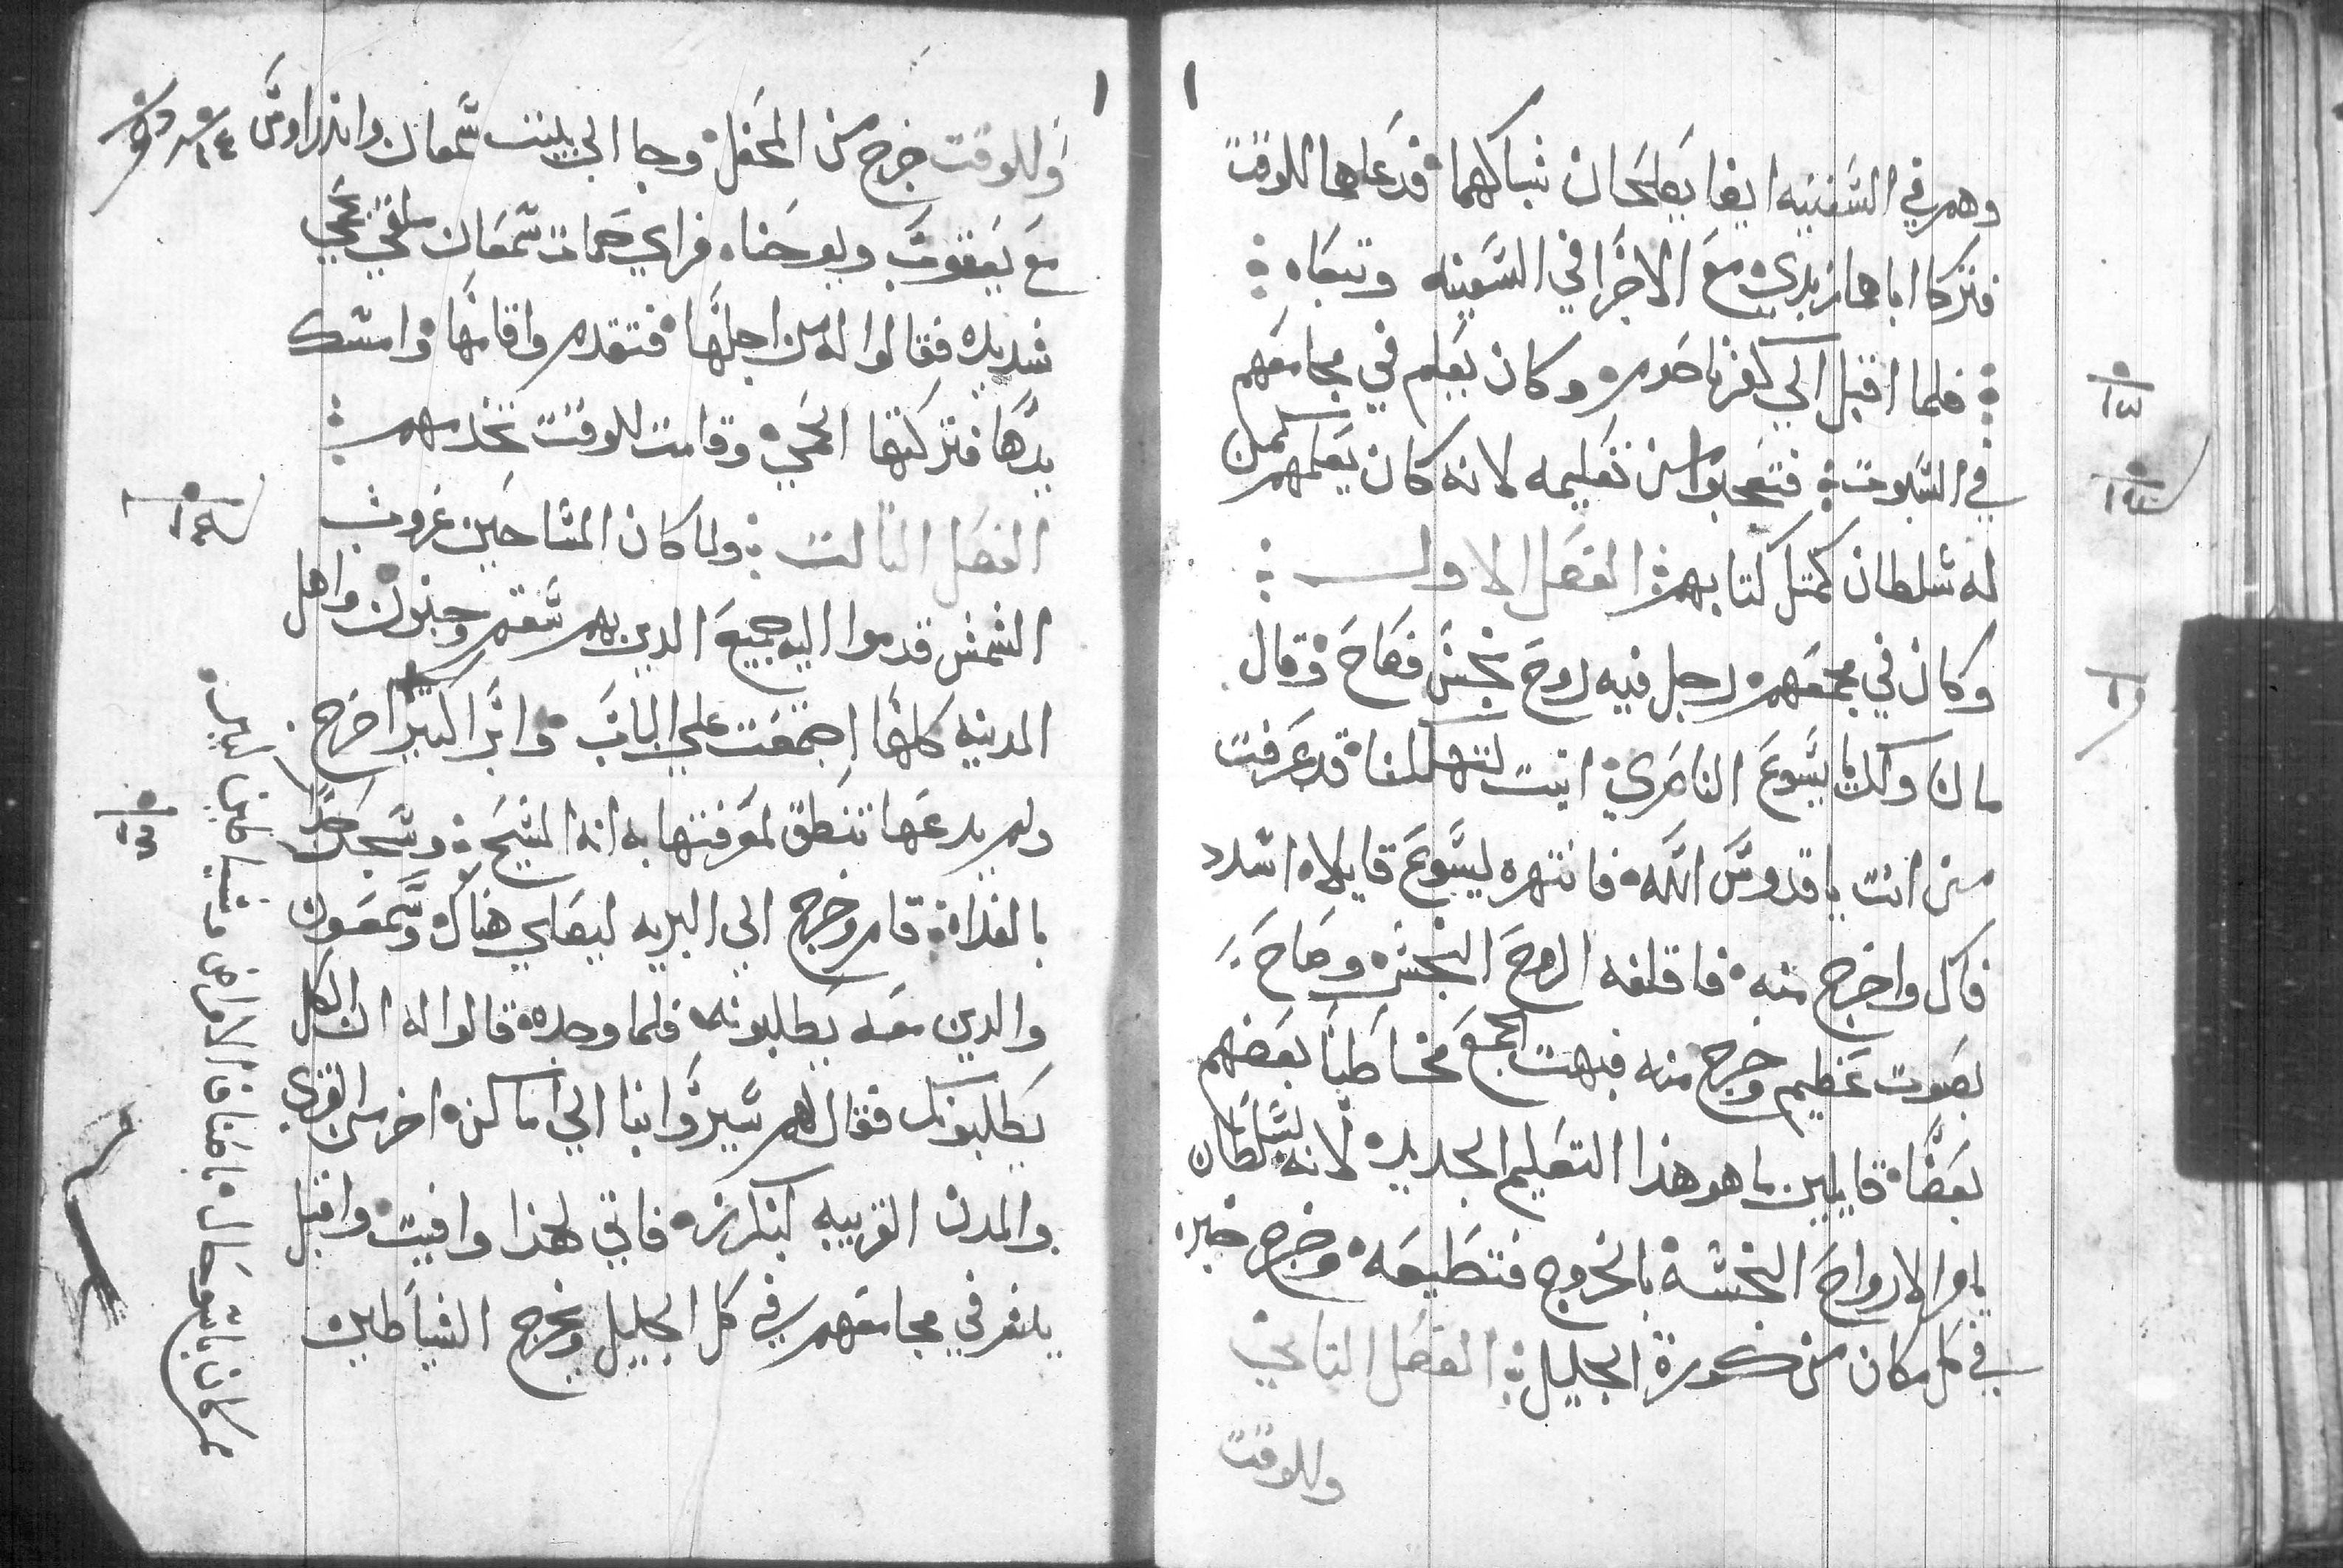 وهم في السفينه ايضا يصلحان شباكهما فدعاهما للوقت
فتركا اباهما زبدي مع الاجرا في السفينه وتبعاه
فلما اقبل الي كفرناحوم وكان يعلم في مجامعهم
في السبوت فتعجبوا من تعليمه لانه كان يعلمهم كمن
له سلطان كمتل كتابهم الفصل الاول
وكان في مجمعهم رجل فيه روح نجس فصاح وقال
مالنا ولك يا يسوع الناصري اتيت لتهلكنا قد عرفت
من انت يا قدوس الله فانتهره يسوع قايلا اسدد
فاك واخرج منه فاقلقه الروح النجس وصاح
بصوت عظيم وخرج منه فبهت الجمع مخاطبا بعضهم
بعضا قايلين ما هو هذا التعليم الجديد لانه بسلطان
يامر الارواح النجسه بالخروج فتطيعه وخرج خبره
في كل مكان من كورة الجليل الفصل التاني
وللوقت
وللوقت خرج من المحفل وجا الي بيت سمعان واندراوس
مع يعقوب ويوحنا فراي حمات سمعان ملقي بحمي
شديده فقالوا له من اجلها فتقدم واقامها وامسك
يدها فتركتها الحمي وقامت للوقت تخدمهم
الفصل التالت ولما كان المسا حين غروب
الشمس قدموا اليه جميع الدين بهم سقم وجنون واهل
المدينه كلها اجتمعت علي الباب وابرا كتيرا اخرج
ولم يدعها تنطق لمعرفتها به انه المسيح وسحر جدا
بالغداة قام وخرج الي البريه ليصلي هناك وسمعون
والدين معه يطلبونه فلما وجده قالوا له ان الكل
يطلبونك فقال لهم سيروا بنا الي اماكن اخر من القري
والمدن القريبه لنكرز فاني لهذا وافيت واقبل
يبشر في مجامعهم في كل الجليل ويخرج الشياطين